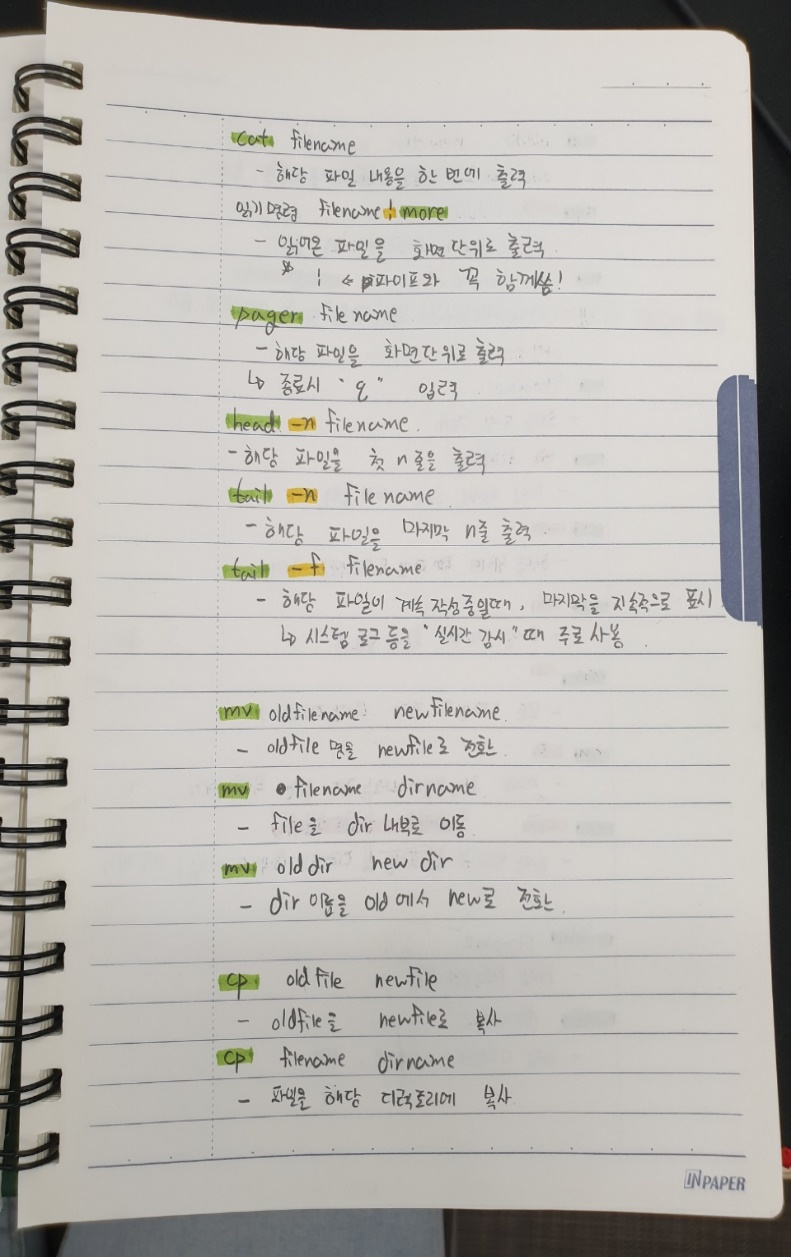 cat filename
- 해당 파일 내용을 한 번에 출력
읽기명령 filename | more
- 읽어온 파일을 화면단위로 출력
* | ← 파이프와 꼭 함께씀!
pager filename
- 해당 파일을 화면단위로 출력
↳ 종료시 "q" 입력
head -n filename.
- 해당 파일을 첫 n줄을 출력
tail -n filename
- 해당 파일을 마지막 n줄 출력
tail -f filename
- 해당 파일이 계속 작성중일때, 마지막을 지속적으로 표시
↳ 시스템 로그 등을 "실시간 감시" 때 주로 사용
mv oldfilename newfilename
- oldfile 명을 newfile로 전환
mv filename dirname
- file을 dir 내부로 이동
mv olddir new dir
- dir 이름을 old에서 new로 전환
cp oldfile newfile
- oldfile을 newfile로 복사
cp filename dirname
- 파일을 해당 디렉토리에 복사
INPAPER